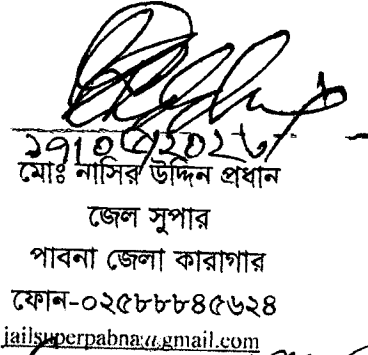 মোঃ নাসির উদ্দিন প্রধান
জেল সুপার
পাবনা জেলা কারাগার
ফোন-০২৫৮৮৮৪৫৬২৪
jailsuperpabna@gmail.com